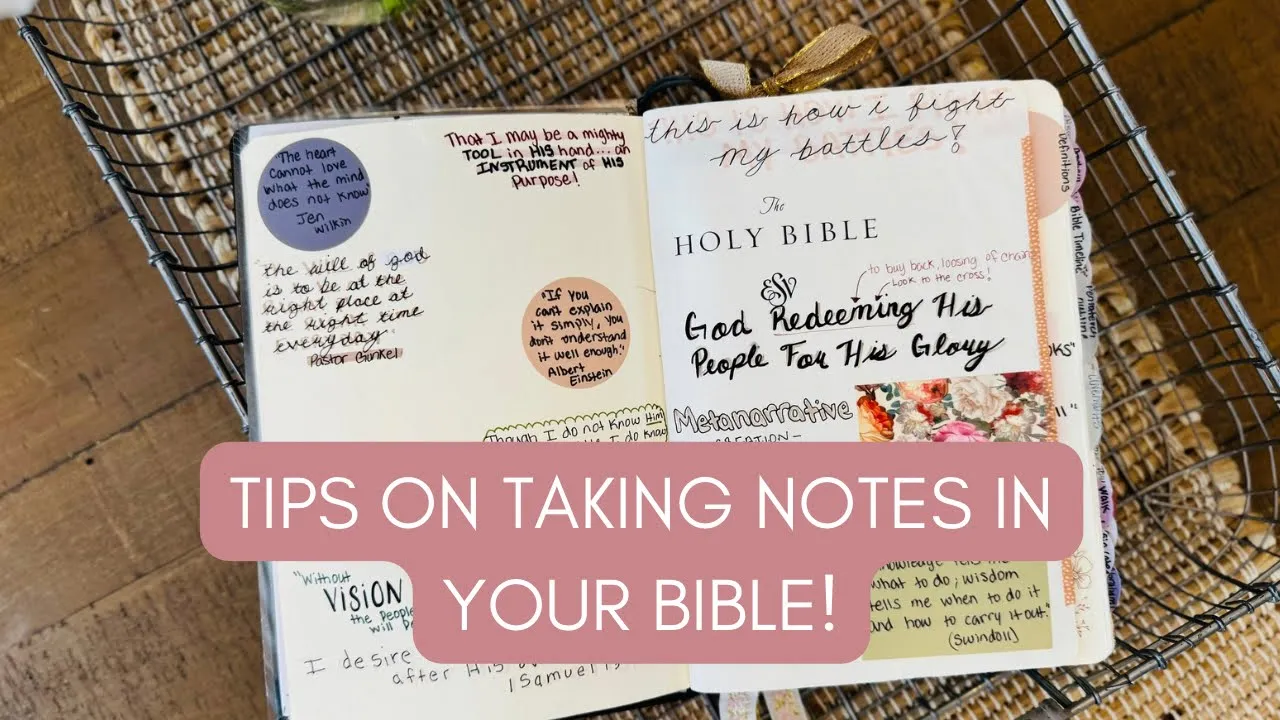 "The heart
Cannot love
what the mind
does not know"
Jen
Wilkin
That I may be a mighty
TOOL in HIS hand... an
INSTRUMENT of HIS
Purpose!
the will of god
is to be at the
right place at
the right time
everyday"
Pastor Gunkel
"If you
can't explain
it simply, you
don't understand
it well enough."
Albert
Einstein
Though I do not know Him
I do know
"Without
VISION
the People
will
I desire
after His
1 Samuel 13
this is how i fight
my battles!
The
HOLY BIBLE
ESV
to buy back, loosing of chain
Look to the cross!
God Redeeming His
People For His Glory
Metanarrative
CREATION-
TIPS ON TAKING NOTES IN
YOUR BIBLE!
what to do; wisdom
tells me when to do it
and how to carry it out."
(Swindoll)
Definitions
Bible Timeline